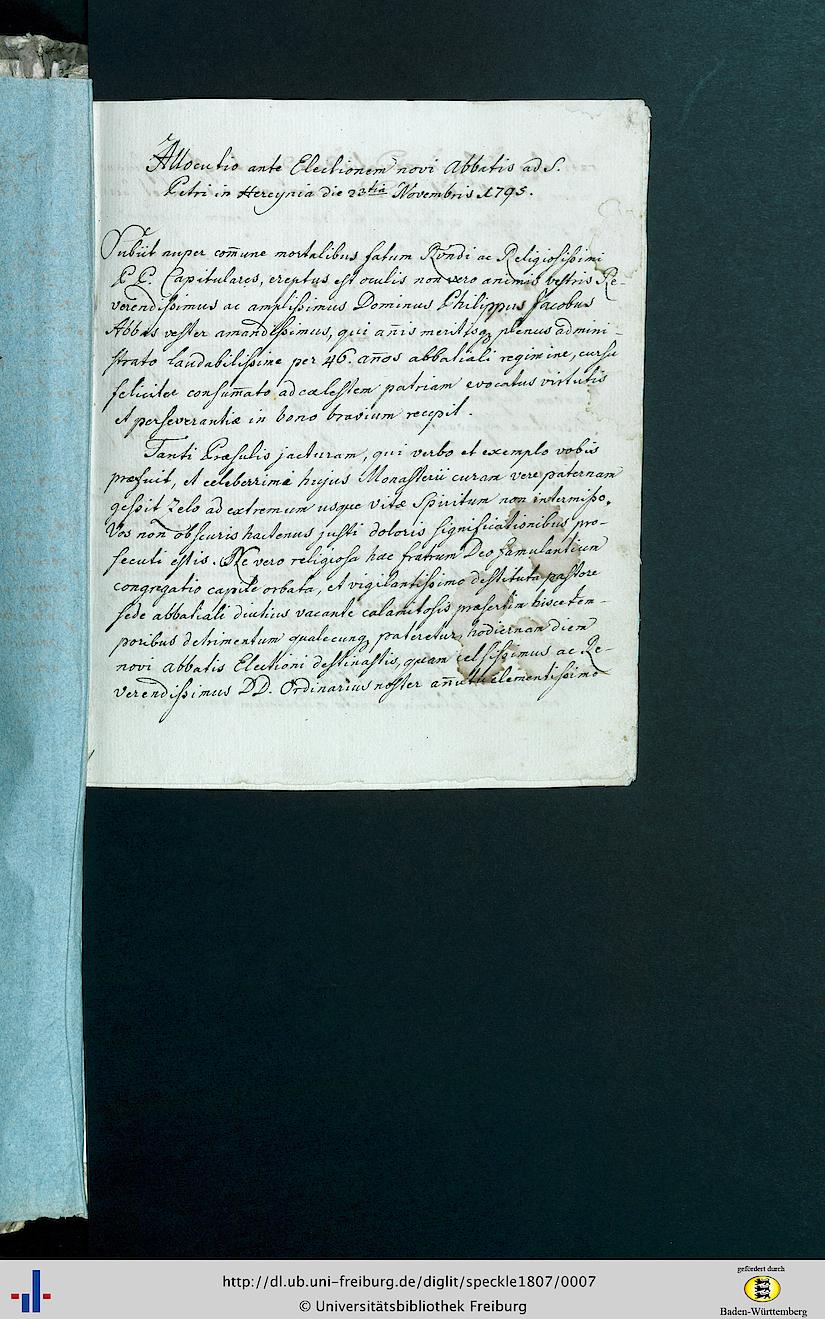 Allocutio ante Electionem novi Abbatis ad S.
Petri in Hercynia die 23tia Novembris 1795.
Subiit nuper com̄une mortalibus fatum Rvndi ac Religiosissimi
P. P. Capitulares, ereptus est oculis non vero animis vestris Re-
verendissimus ac amplissimus Dominus Philippus Jacobus
Abbas vester amandissimus, qui an̄is meritisq plenus admini-
strato laudabilissime per 46. an̄os abbatiali regimine, cursu
feliciter consum̄ato ad cælestem patriam evocatus virtutis
et perseverantiæ in bono bravium recepit.
Tanti Præsulis jacturam, qui verbo et exemplo vobis
præfuit, et celeberrimi hujus Monasterii curam vere paternam
gessit zelo ad extremum usque vitæ Spiritum non intermisso,
Vos non obscuris hactenus justi doloris significationibus pro-
secuti estis. Ne vero religiosa hæc fratrum Deo famulantium
congregatio capite orbata, et vigilantissimo destituta pastore
sede abbatiali diutius vacante calamitosis præsertim hisce tem-
poribus detrimentum qualecunq pateretur, hodiernam diem
novi abbatis Electioni destinastis, quam celsissimus ac Re-
verendissimus DD. Ordinarius noster an̄uit clementissime
http://dl.ub.uni-freiburg.de/diglit/speckle1807/0007
© Universitätsbibliothek Freiburg
gefördert durch
Baden-Württemberg